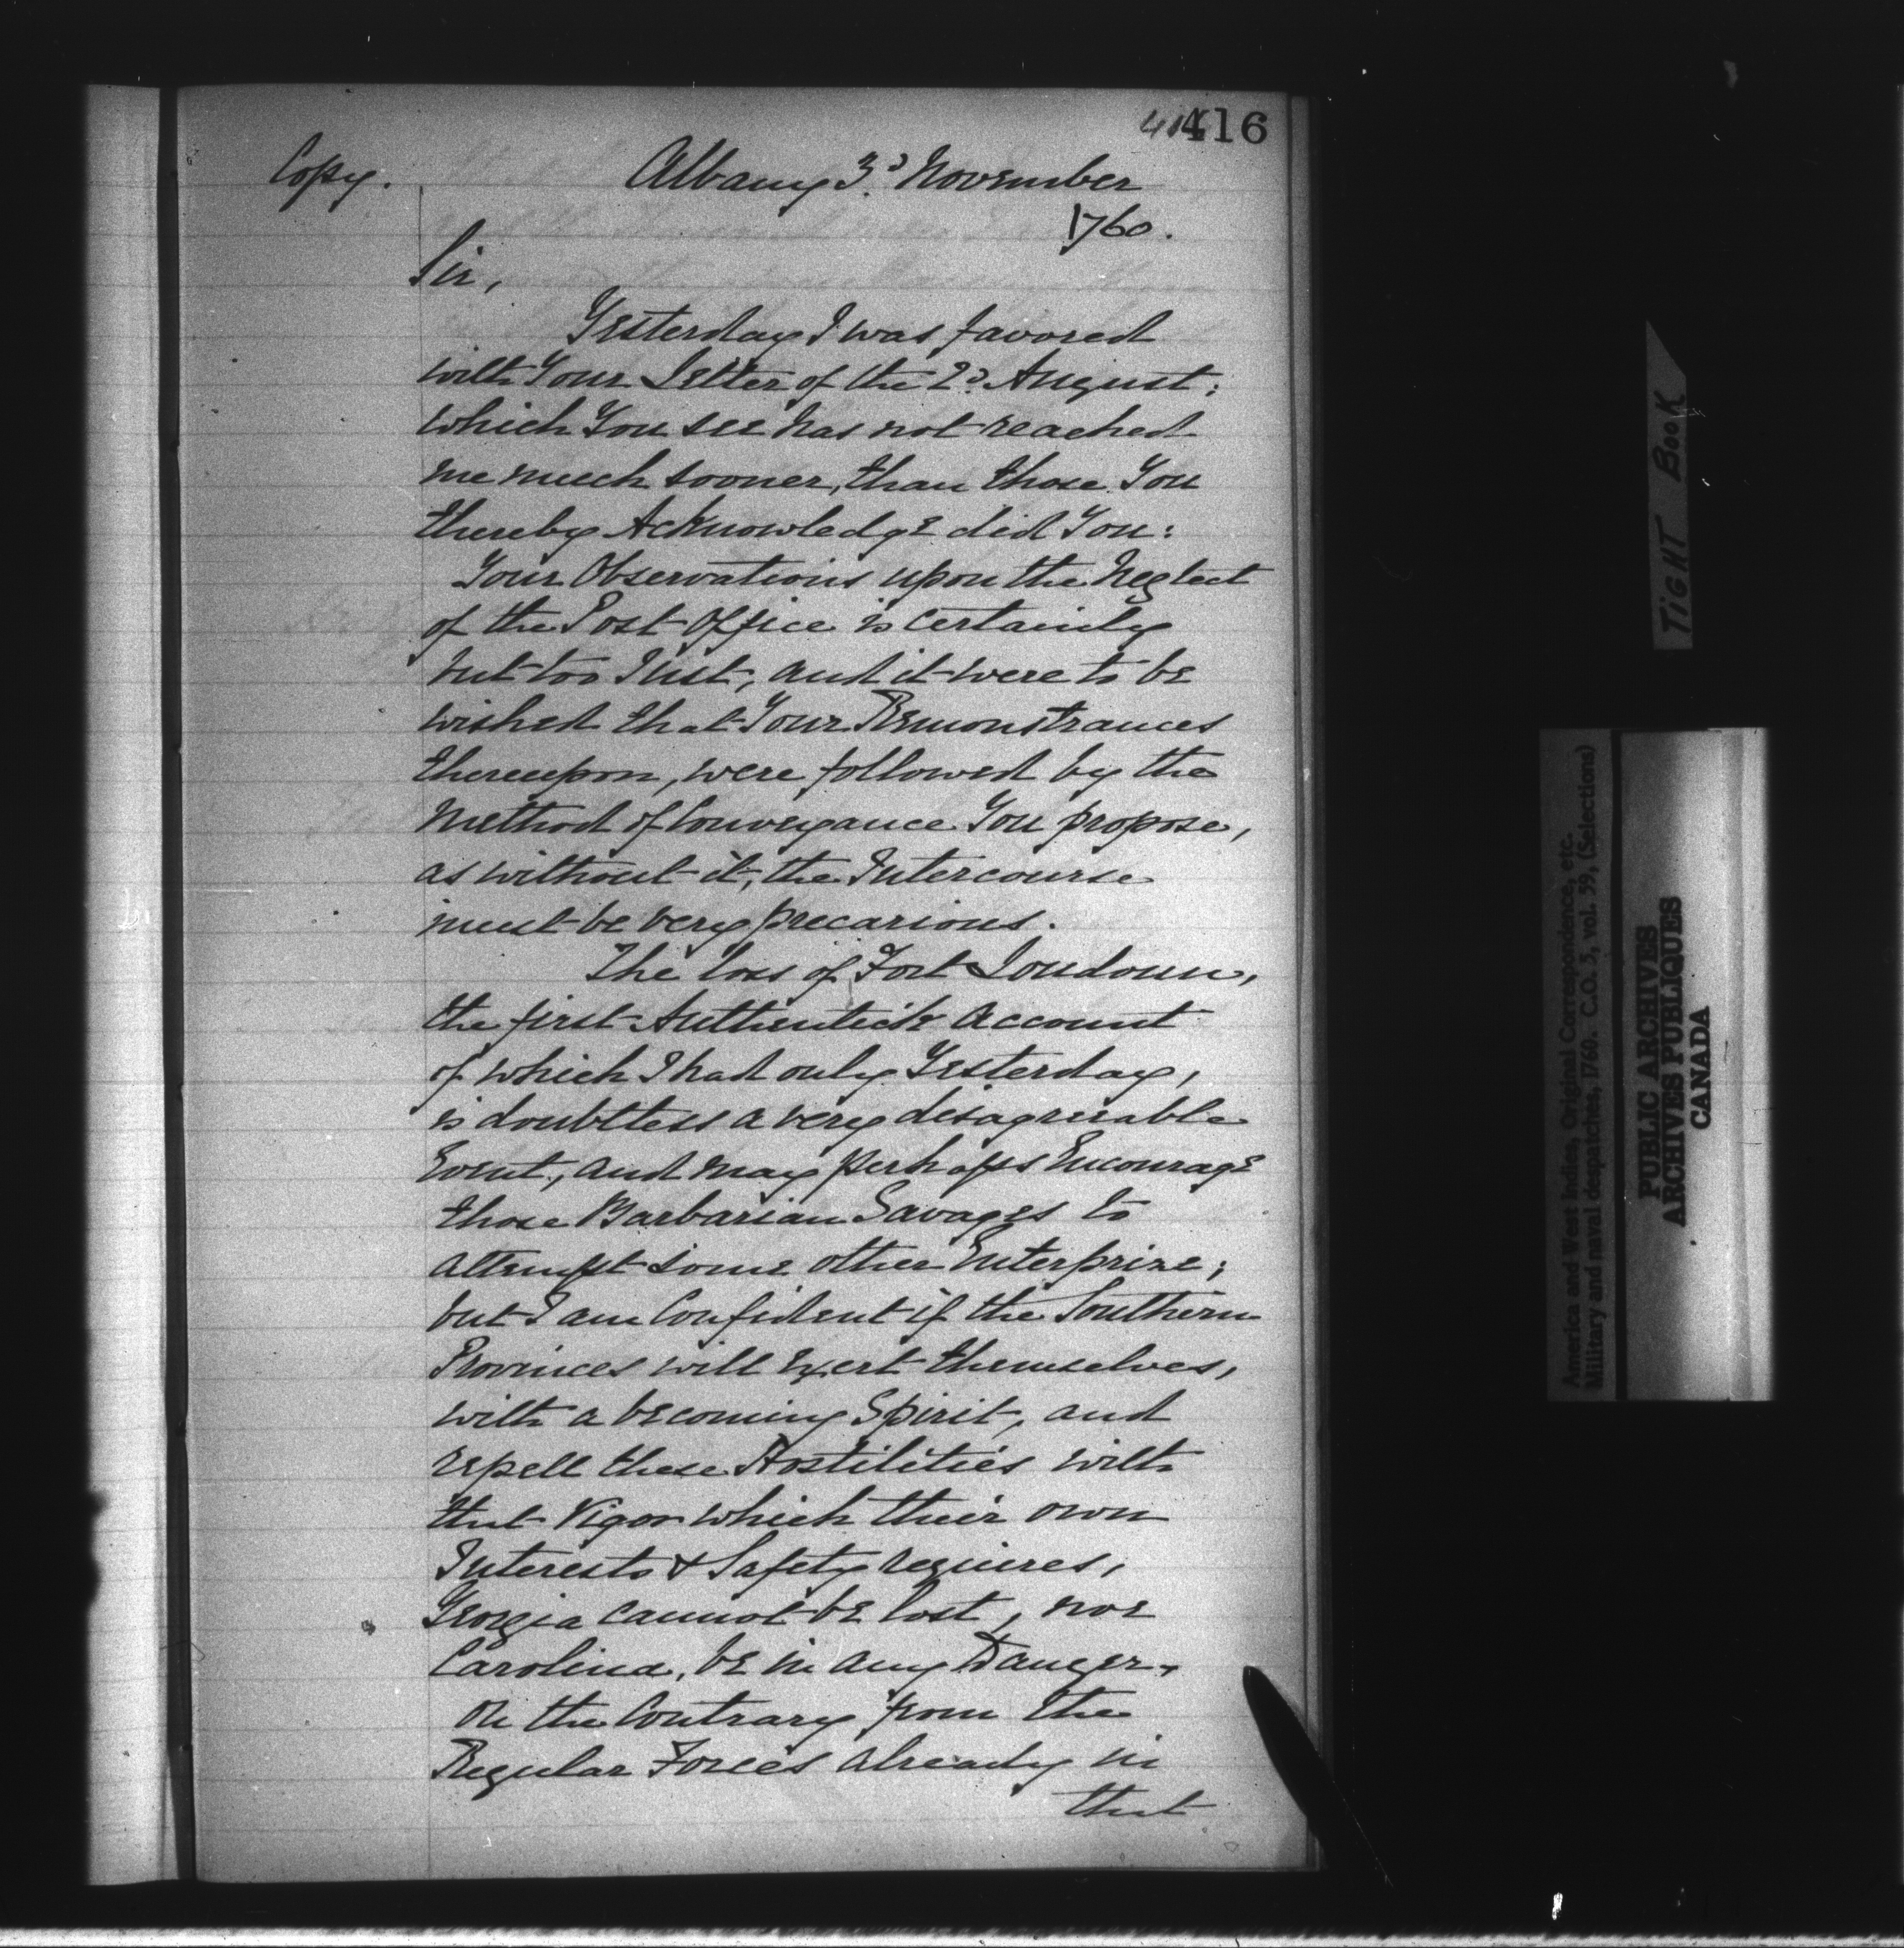 416
Copy.
Albany 3.d November
1760.
Sir,
Yesterday I was favored
with Your Letter of the 2.d August;
which You see has not reached
me much sooner, than those You
thereby Acknowledge did You:
Your Observations upon the Neglect
of the Post Office is Certainly
but too Just, and it were to be
wished that Your Remonstrances
thereupon, were followed by the
Method of Conveyance You propose,
as without it, the Intercourse
must be very precarious.
The loss of Fort Loudoun,
the first Authentick Account
of which I had only Yesterday,
is doubtless a very disagreeable
Event, and may perhaps Encourage
those Barbarian Savages to
attempt some other Enterprize;
but I am Confident if the Southern
Provinces will Exert themselves,
with a becoming Spirit, and
repell these Hostilities with
that Vigor which their own
Interests & Safety requires,
Georgia cannot be lost, nor
Carolina, be in any Danger,
On the Contrary from the
Regular Forces already in
that
TIGHT BOOK
America and West Indies, Original Correspondence, etc.
Military and naval despatches, 1760. C.O. 5, vol. 59, (Selections)
PUBLIC ARCHIVES
ARCHIVES PUBLIQUES
CANADA